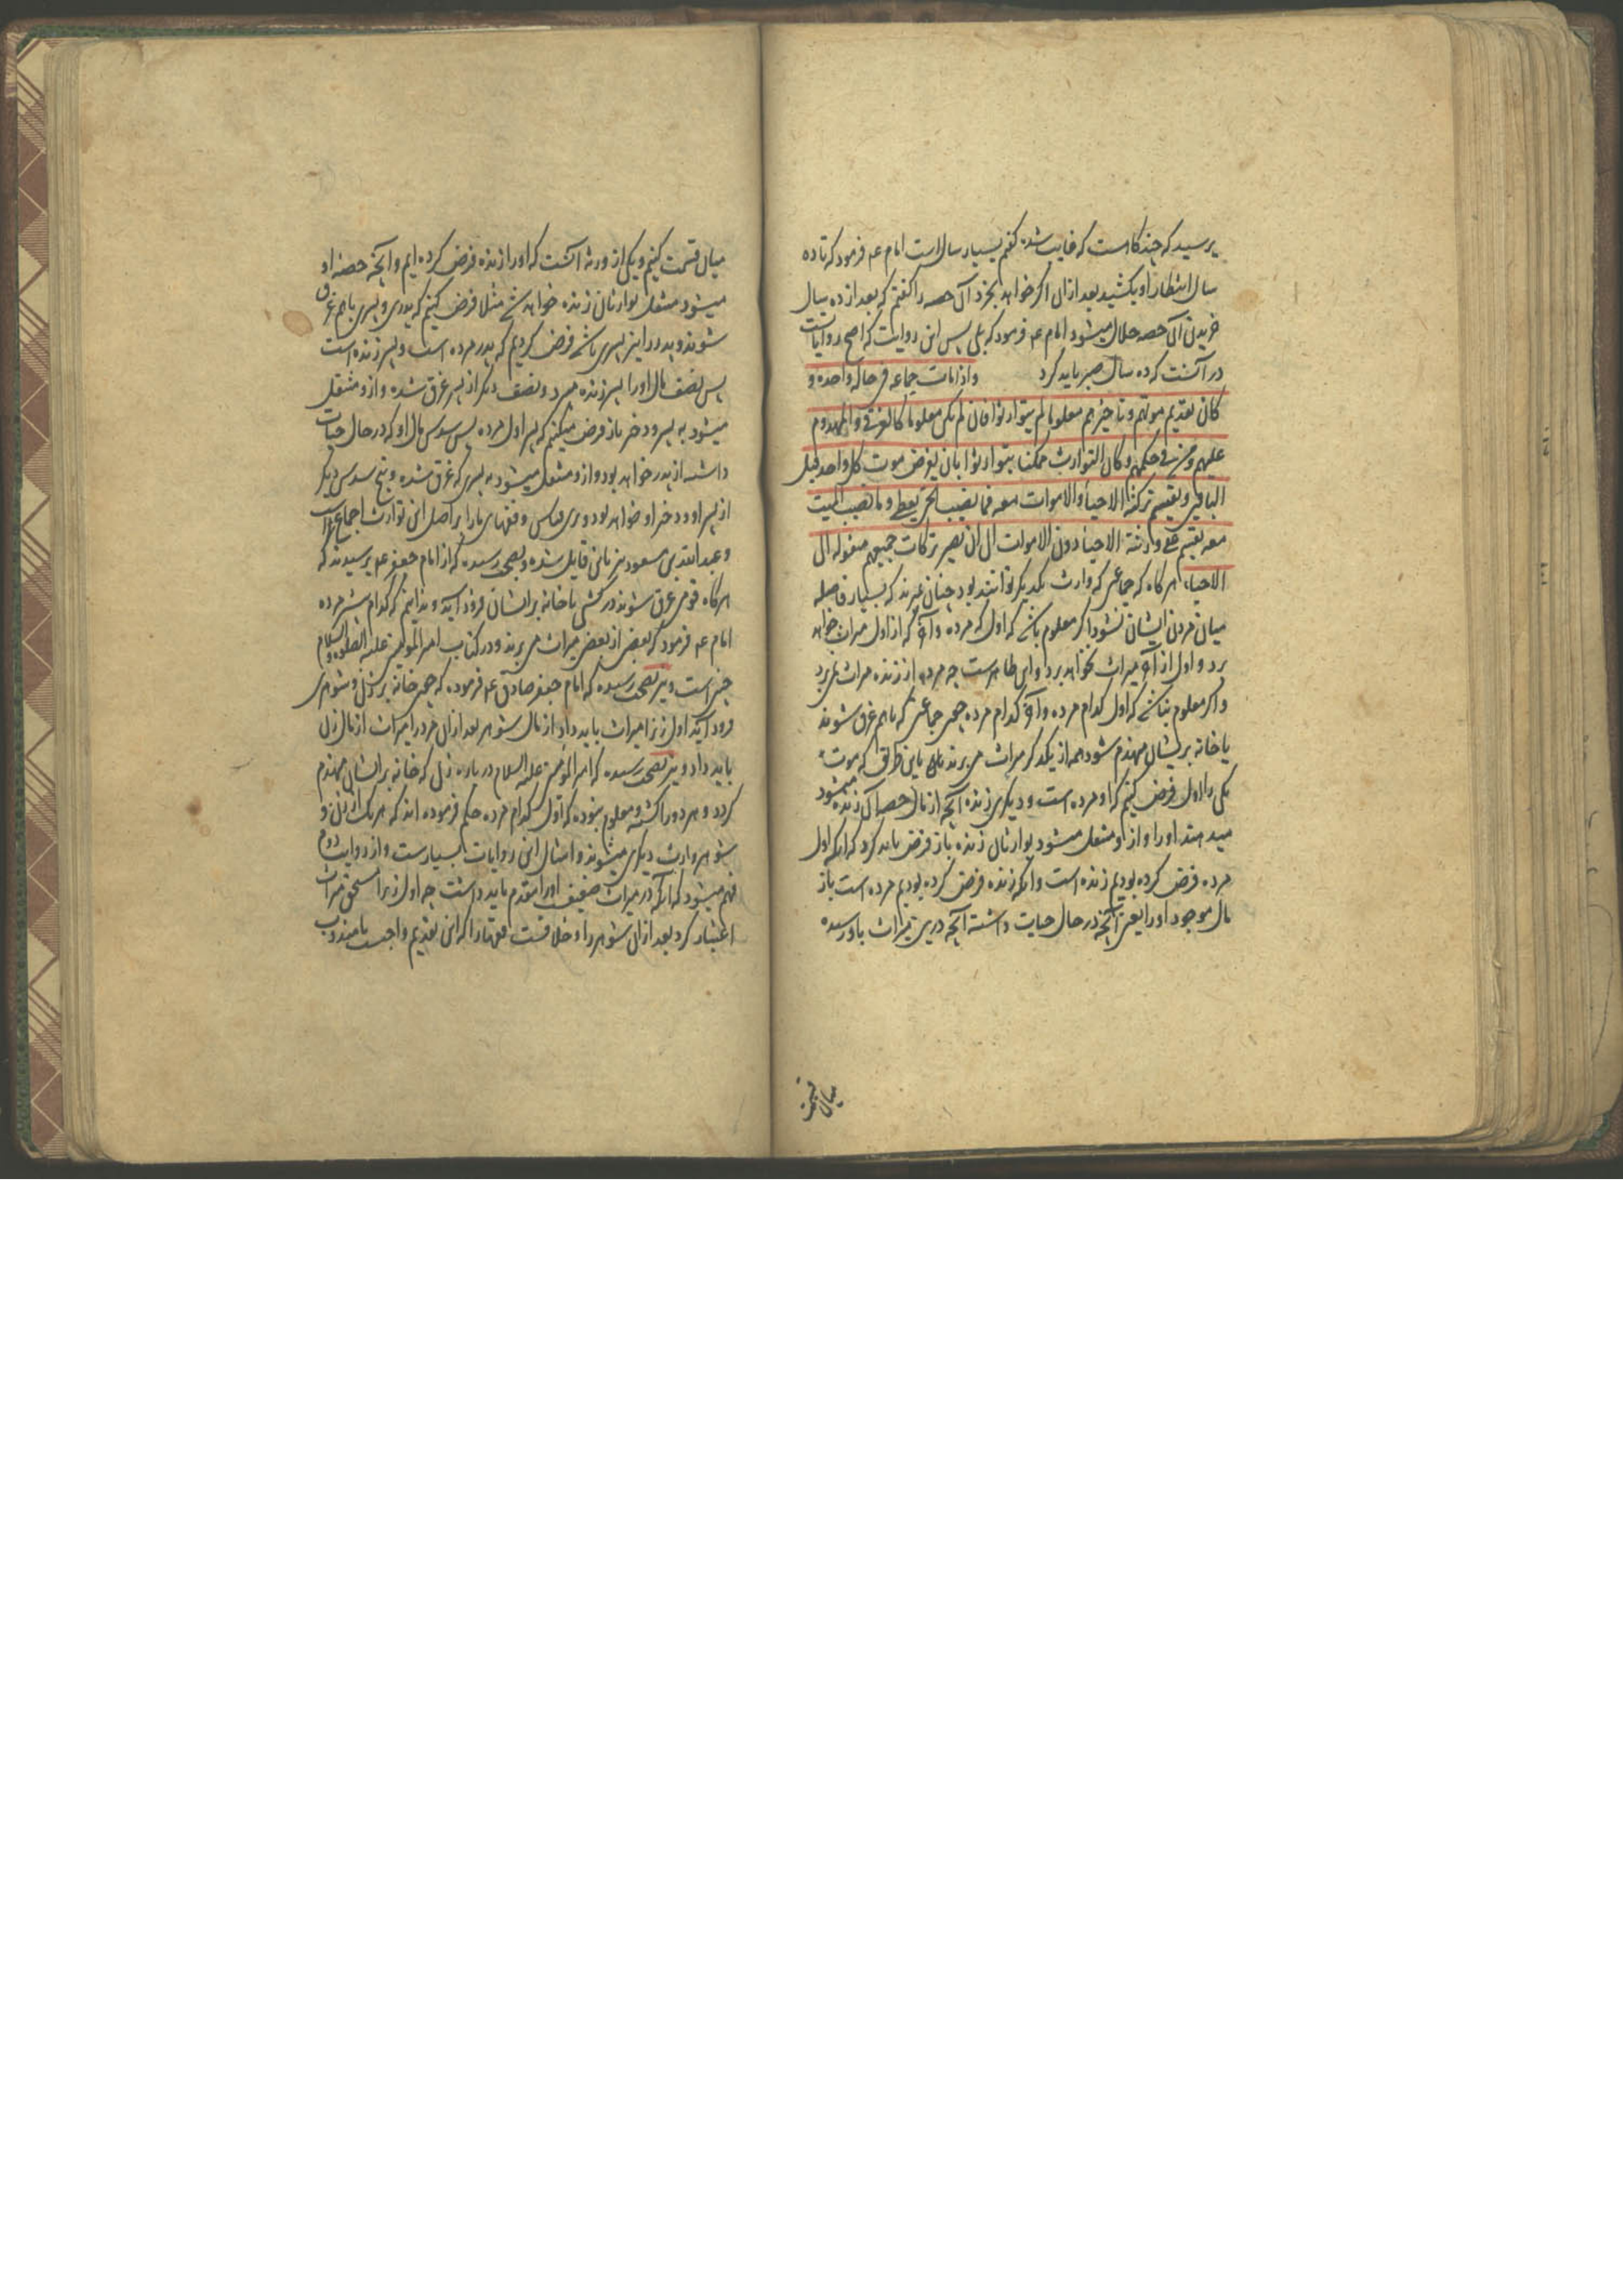 پرسید که چند کاه است که غایب شده کفتم بسیار سالاست امام عه فرمود که تا ده
سال انتظار او بکشید بعد از ان اکر خواهد بخرد ان حصه را کفتم که بعد از ده سال
خریدن ان حصه حلال میشود امام عه فرمود که بلی پس این روایت که اصح روایات
در انست که ده سال صبر باید کرد واذا مات جماعه فی حاله واحده و
کان تقدیم موتهم وتاخیرهم معلوما لم یتوارثوا فان لم یکن معلوما کالغرقی والمهدوم
علیهم ومن فی حکمهم وکان التوارث ممکنا یتوارثوا بان یفرض موت کل واحد قبل
الباقین ویقسم ترکته الاحیاء والاموات معه فما یصیب الحی یعطی وما یصیب المیت
معه یقسم علی وارثته الاحیاء دون الاموات الی ان یصیر ترکات جمیعهم منقوله الی
الاحیاء هر کاه که جماعتی که وارث یکدیکر توانند بود چنان میرند که بسیار فاصله
میان مردن ایشان نشود اکر معلوم باشد که اول که مرده و آخر که از اول میراث خواهد
برد و اول از آخر میراث نخواهد برد و این ظاهرست چه مرده از زنده میراث نمی برد
و اکر معلوم نباشد که اول کدام مرده و آخر کدام مرده همچو جماعتی که باهم غرق شوند
یا خانه بر ایشان مهندم شود همه از یکدکر میراث می برند باین طریق که موت
یکی را اول فرض کنیم که او مرده است و دیکری زنده انچه از مال حصه ان زنده میشود
میدهند او را و از او منتقل میشود بوارثان زنده باز فرض باید کرد که انکه اول
مرده فرض کرده بودیم زنده است و انکه زنده فرض کرده بودیم مرده است باز
مال موجود او را یعنی انچه در حال حیات داشته انچه درین میراث باو رسیده
میان قسمت
میان قسمت کنیم و یکی از ورثه انست که او را زنده فرض کرده ایم و انچه حصه او
میشود منتقل بوارثان زنده خواهد شد مثلا فرض کنیم که پدری و پسری باهم غرق
شوند و پدر را نیز پسری باشد فرض کردیم که پدر مرده است و پسر زنده است
پس نصف مال او را پسر زنده میبرد و نصف دیکر از پسر غرق شده و از و منتقل
میشود به پسر و دختر باز فرض میکنیم که پسر اول مرده پس سدس مال او که در حال حیات
داشته از پدر خواهد بود و از و منتقل میشود به پسری که غرق شده و پنج سدس دیکر
از پسر او و دختر او خواهد بود و برین قیاس و فقهای ما را بر اصل این توارث اجماع است
و عبدالله بن مسعود نیز باین قایل شده و بصحت رسیده که از امام جعفر عه پرسیدند که
هر کاه قومی غرق شوند در کشتی یا خانه بر ایشان فرود اید و ندانیم که کدام پیشتر مرده
امام عه فرمود که بعضی از بعضی میراث می برند و در کتاب امیر المؤمنین علیه الصلوة والسلام
چنین است و نیز بصحت رسیده که امام جعفر صادق عه فرموده که چون خانه بر زن و شوهری
فرود آید اول زن را میراث باید داد از مال شوهر بعد از ان مرد را میراث از مال زن
باید داد و نیز بصحت رسیده که امیر المؤمنین علیه السلام درباره زن که خانه بر ایشان مهندم
کردد و هر دو را کشته و معلوم نبوده که اول کدام مرده حکم فرموده اند که هر یک از زن و
شوهر وارث دیکری میشوند و امثال این روایات بسیارست و از روایت دوم
فهم میشود که انکه در میراث ضعیف او را مقدم باید داشت چه اول زن را مستحق میراث
اعتبار کرد بعد از ان شوهر را و خلافست فقها را که این تقدیم واجبست یا مندوب